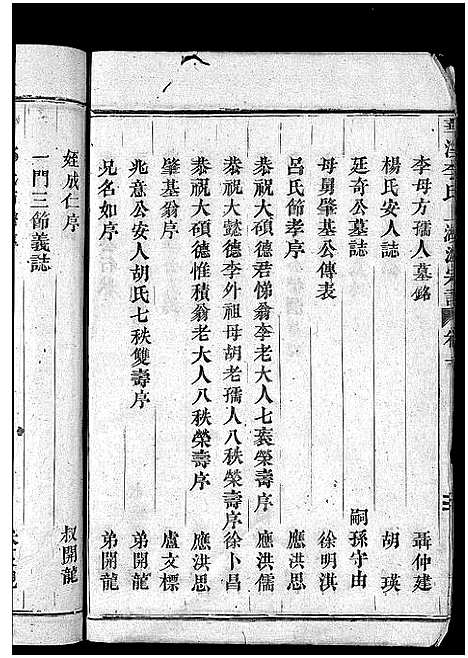 李母方孺人墓銘 聶仲建
楊氏安人墓記 胡瑛
廷奇公墓誌 嗣孫守由
母舅肇基公傳表 徐明淇
呂氏節孝序 應洪思
恭祝大碩德君悌翁李老大人七袠榮壽序 應洪儒
恭祝大懿德李外祖母胡老孺人八秩榮壽序 徐卜昌
恭祝大碩德惟積翁老大人八秩榮壽序 應洪思
肇基翁序 盧文標
兆意公安人胡氏七秩雙壽序 弟開龍
兄名如序 弟開龍
姪成仁序 叔開龍
一門三節義誌